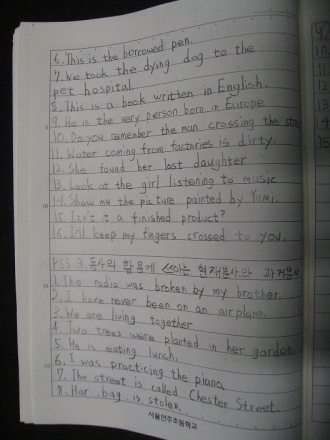 6. This is the borrowed pen.
7. We took the dying dog to the
pet hospital.
8. This is a book written in English.
9. He is the very person born in Europe
10. Do you remember the man crossing the street
11. Water coming from factories is dirty.
12. She found her lost daughter
13. Look at the girl listening to music
14. Show me the picture painted by Yumi.
15. Isn't it a finished product?
16. I'll keep my fingers crossed to you.
PSS 3. 동사의 활용에 쓰이는 현재분사와 과거분사
1. The radio was broken by my brother.
2. I have never been on an airplane.
3. We are living together
4. Two trees were planted in her garden.
5. He is eating lunch.
6. I was practicing the piano.
7. The street is called Chester Street.
8. Her bag is stolen.
서울언주초등학교